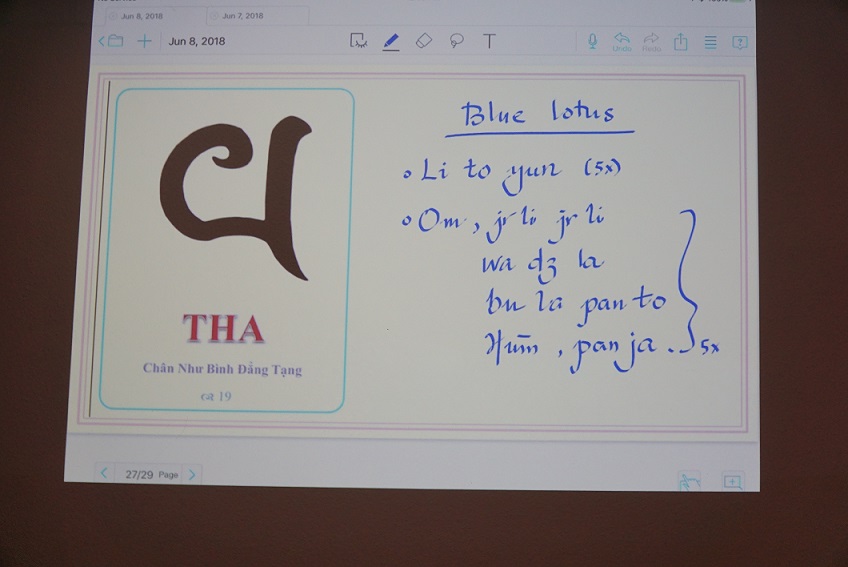 Jun 8, 2018
Jun 7, 2018
Jun 8, 2018
T
Undo
Redo
?
Blue lotus
Li to yun (5x)
Om, jr li jr li
wa dz la
bu la pan to
Hūm, pan ja. 5x
THA
Chân Như Bình Đẳng Tạng
19
27/29 Page